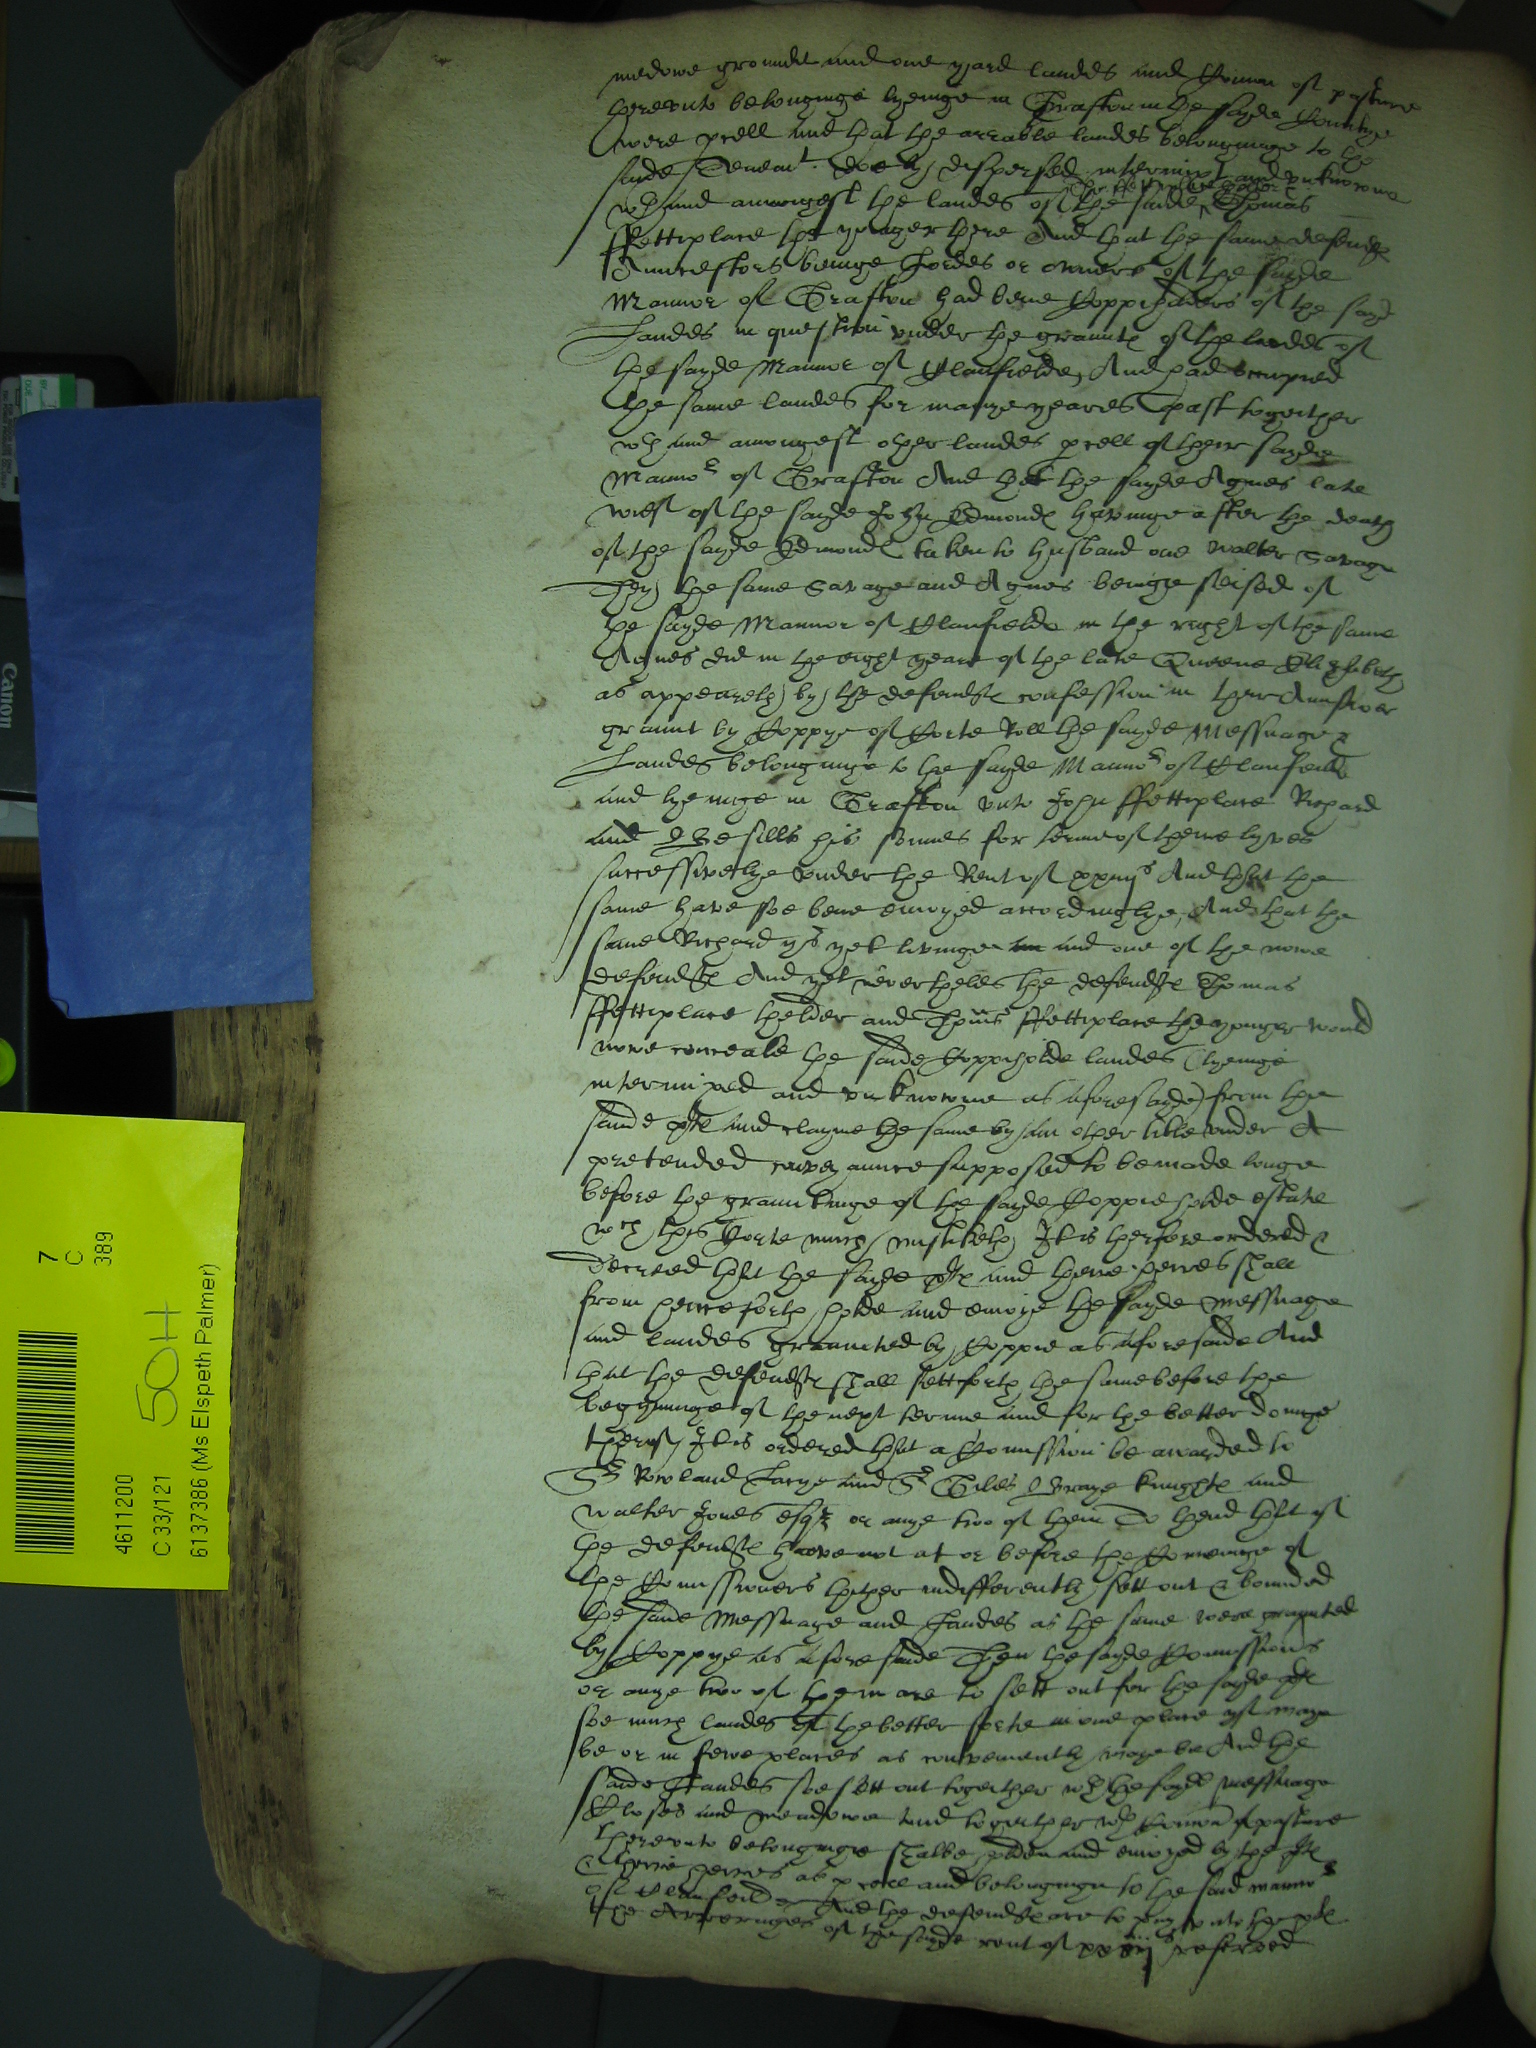 medowe grounde and one yard landes and Comon of pasture
thereunto belonginge lyenge in Grafton in the sayde Countye
were pcell and that the arrable landes belonginge to the
saide Tenemt. doe ly dispersed intermixt and unknowne
wth and amongest the landes of the saide Thomas
ffettiplace the yonger there And that the same defendtes
Auncestors beinge Lordes or owners of the sayde
Mannor of Grafton had bene Coppiholders of the sayd
Landes in question under the grauntes of the lordes of
the sayde Mannor of Clanfielde, And had occupied
the same landes for manye yeares past togeither
wth and amongest other landes pcell of their sayde
Manno^r of Grafton And that the sayde Agnes late
wief of the sayde John Edmondes havinge after the death
of the sayde Edmondes taken to husband one Walter Savage
They the same Savage and Agnes beinge seised of
the sayde Mannor of Clanfielde in the right of the same
Agnes did in the eight yeare of the late Queene Elizabeth
as appeareth by the defendtes confession in their Aunswer
graunt by Coppye of Corte Roll the sayde Messuage &
Landes belonginge to the sayde Manno^r of Clanfeilde
and lyenge in Grafton unto John ffettiplace Richard
and Besills his sonnes for terme of theire lyves
successivelye under the Rent of xxiij^s And that the
same have soe bene enioyed accordinglye, And that the
same Richard ys yet livinge and one of the nowe
defendtes And yet neverthelesse the defendtes Thomas
ffettiplace thelder and Thoms ffettiplace the yonger would
nowe conceale the saide Coppiholde landes (lyenge
intermixed and unknowne as aforesayde) from the
saide pltes and clayme the same by an other title under A
pretended conveyaunce supposed to be made longe
before the grauntinge of the sayde Coppieholde estate
wch this Corte much mislyketh It is therfore ordered &
Decreed that the sayde pltes and theire heires shall
from henceforth holde and enioye the sayde Messuage
and landes graunted by Coppie as aforesaide And
that the defendtes shall sett forth the same before the
beginninge of the next terme and for the better doinge
therof, It is ordered that a Comission be awarded to
Sr Rowland Lacye and Sr Giles Wraye knightes and
Walter Jones esqr or anye two of them To thend that yf
the defendtes have not at or before the Comeinge of
the Comissioners thither indifferently sett out & bounded
the saide Messuage and Landes as the same were graunted
by Coppye as aforesaide Then the sayde Comissions
or anye two of them are to sett out for the sayde pltes
soe much landes of the better sorte in one place yf maye
be or in fewe places as convenientlye maye be And the
saide Landes soe sett out togeither wth the sayde messuage
Closes and meadowe and togeither wth Comon of pasture
thereunto belonginge shalbe holden and enioyed by the pltes
& theire heires as pcell and belonginge to the said manno^r
of Clanfeild And the defendtes are to pay unto the pltes
the Arrerages of the sayde rent of xxiij^s reserved
7
C
389
50H
4611200
C 33/121
6137386 (Ms Elspeth Palmer)
Canon